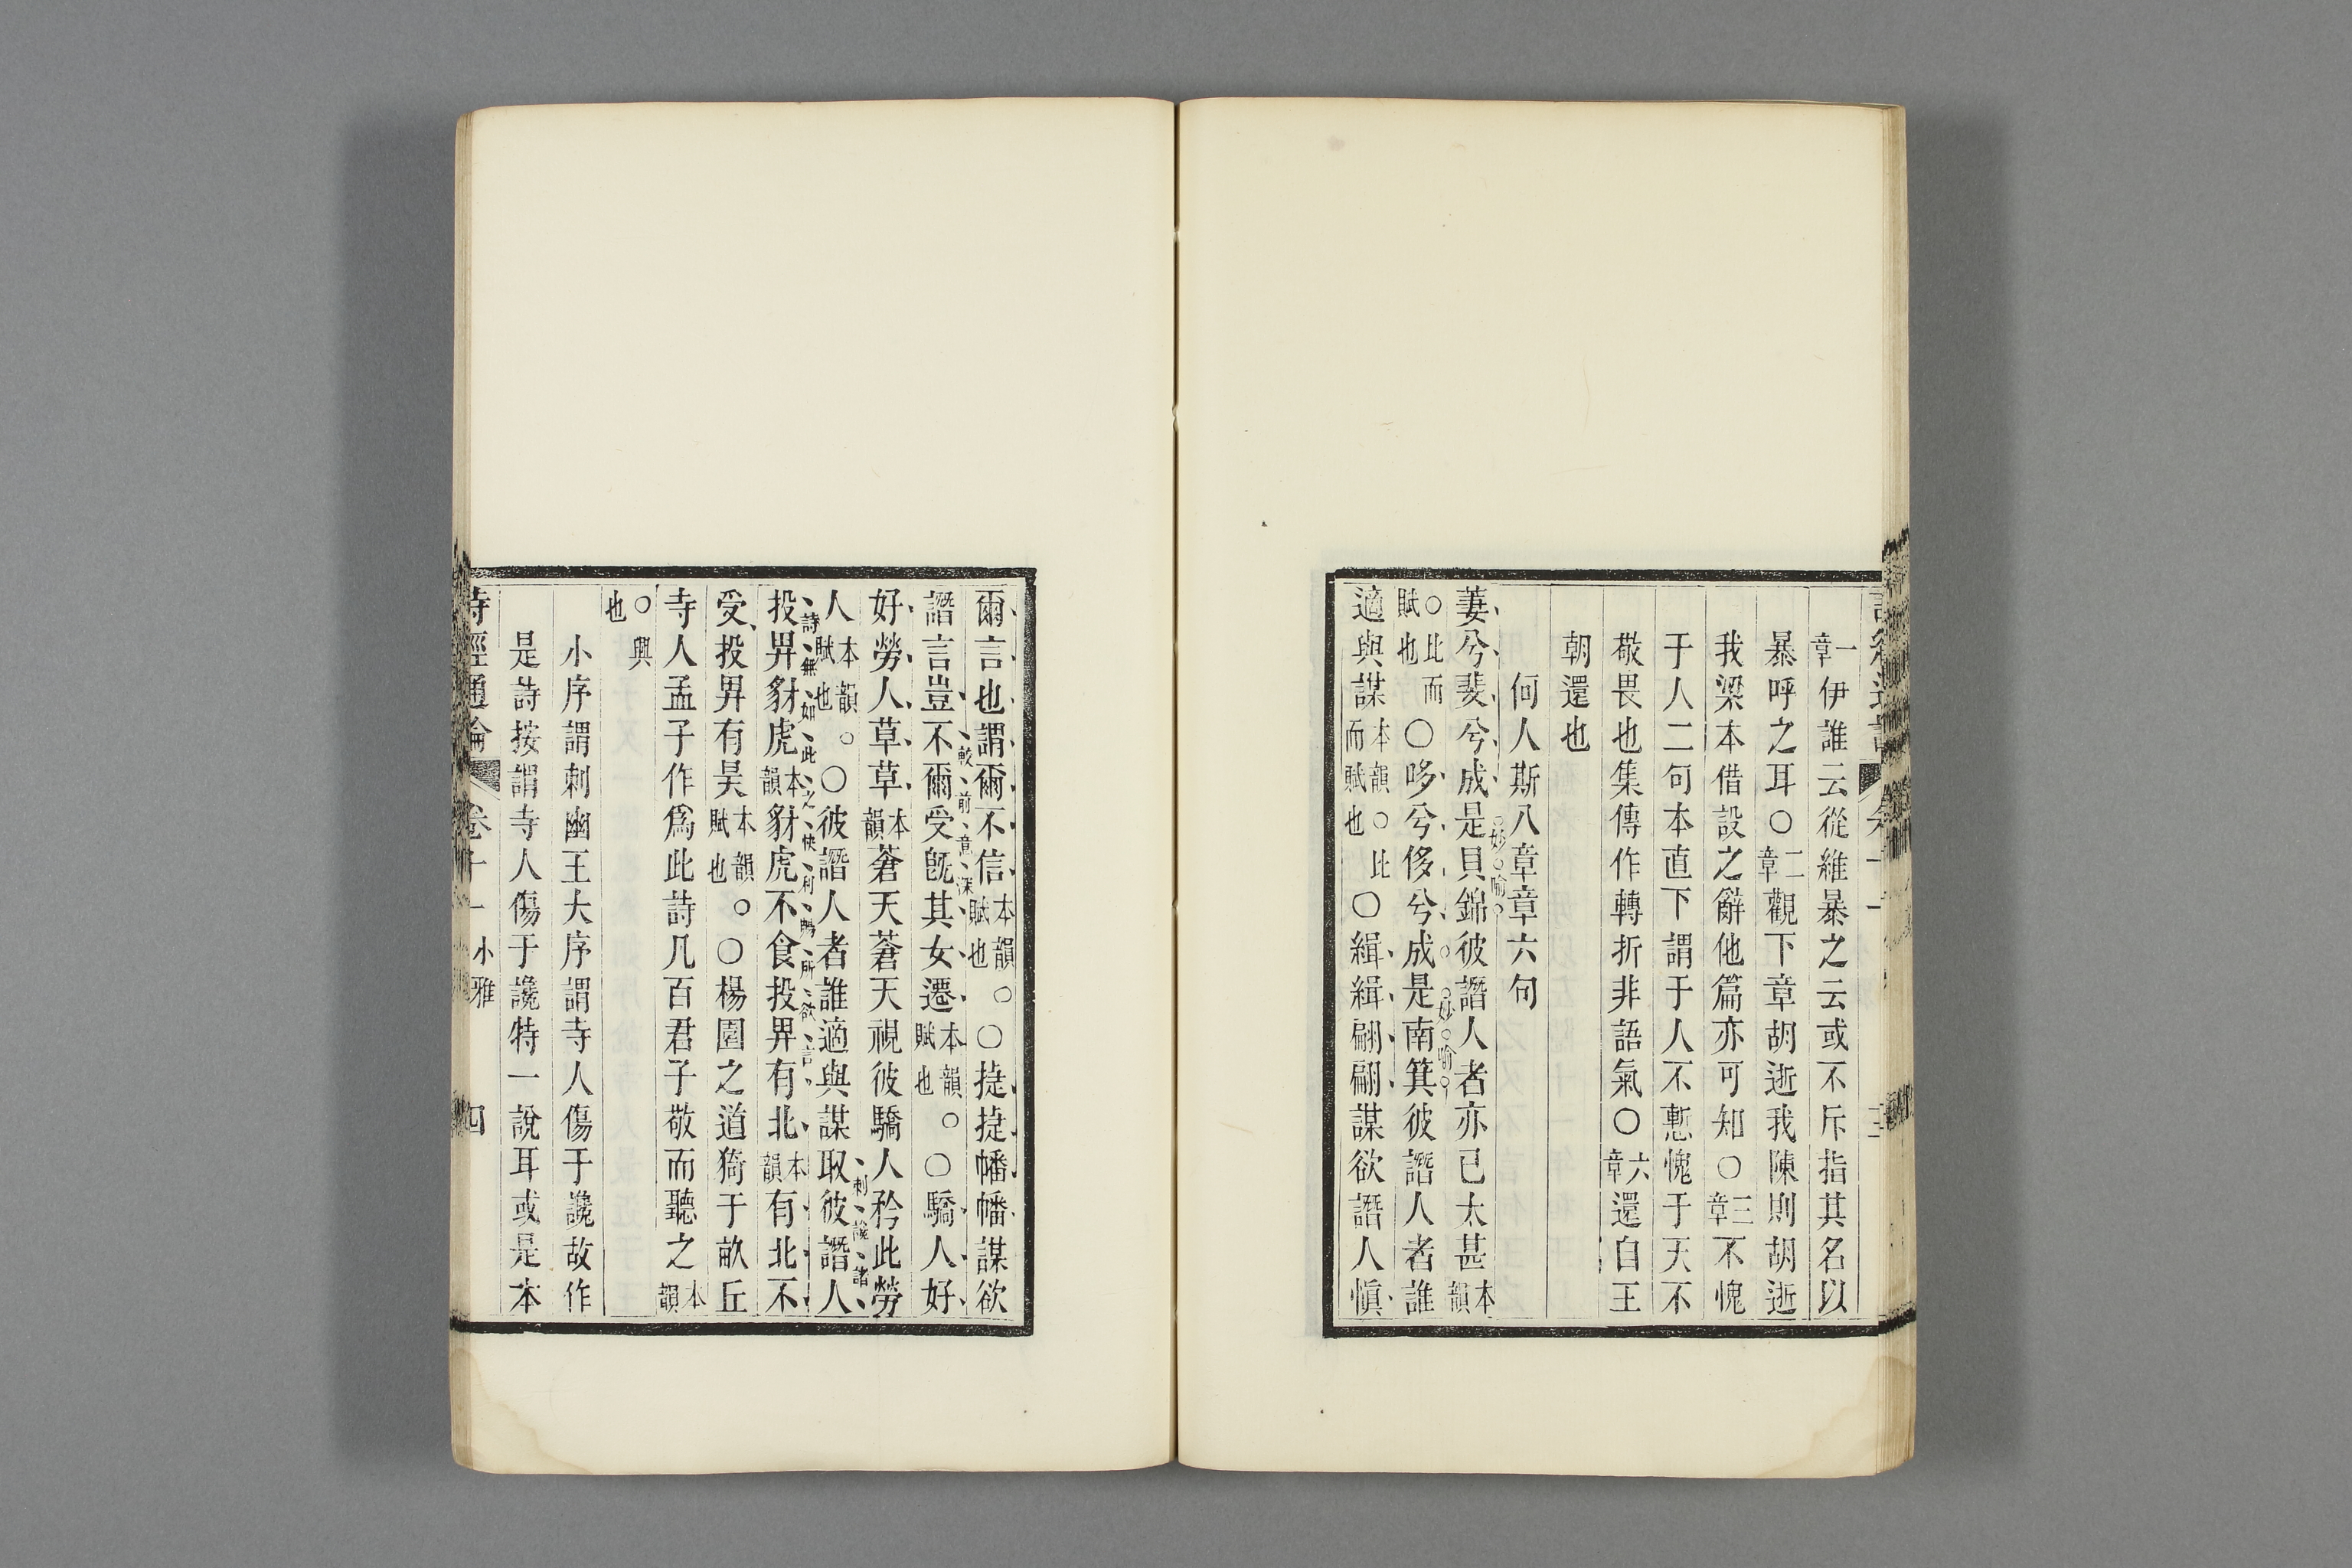 一章伊誰云從維暴之云或不斥指其名以
暴呼之耳○二章觀下章胡逝我陳則胡逝
我梁本借設之辭他篇亦可知○三章不愧
于人二句本直下謂于人不慙愧于天不
敬畏也集傳作轉折非語氣○六章還自王
朝還也
何人斯八章章六句
萋兮斐兮成是貝錦彼譖人者亦已太甚本韻
妙喻
○比而賦也○哆兮侈兮成是南箕彼譖人者誰
妙喻
適與謀本韻○比而賦也○緝緝翩翩謀欲譖人愼
爾言也謂爾不信本韻○賦也○捷捷幡幡謀欲
譖言豈不爾受旣其女遷本韻○賦也○驕人好
較前意深
好勞人草草本韻蒼天蒼天視彼驕人矜此勞
人本韻○賦也○彼譖人者誰適與謀取彼譖人
刺讒諸
投畀豺虎本韻豺虎不食投畀有北本韻有北不
詩無如此之快利暢所欲言
受投畀有昊本韻○賦也○楊園之道猗于畝丘
寺人孟子作爲此詩凡百君子敬而聽之本韻
○興也
小序謂刺幽王大序謂寺人傷于讒故作
是詩按謂寺人傷于讒特一說耳或是本
詩經通論 卷十一 小雅 四